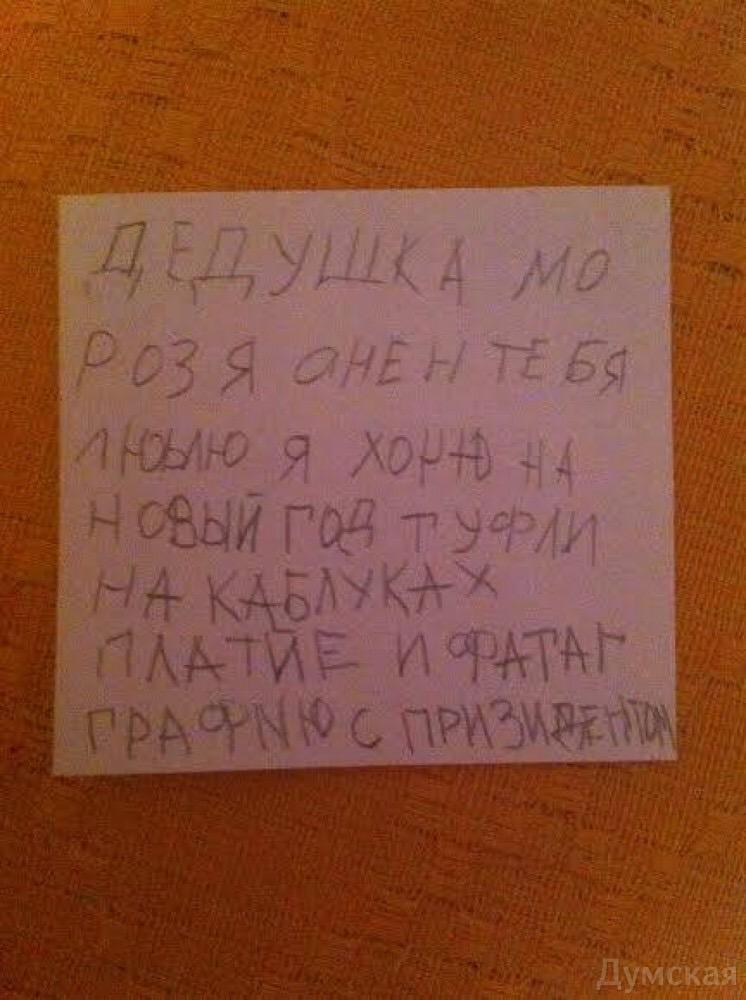 ДЕДУШКА МО
РОЗ Я ОЧЕН ТЕБЯ
ЛЮБЛЮ Я ХОЧЮ НА
НОВЫЙ ГОД ТУФЛИ
НА КАБЛУКАХ
ПЛАТЙЕ И ФАТАГ
ГРАФИЮ С ПРИЗИДЕНТОМ
Думская